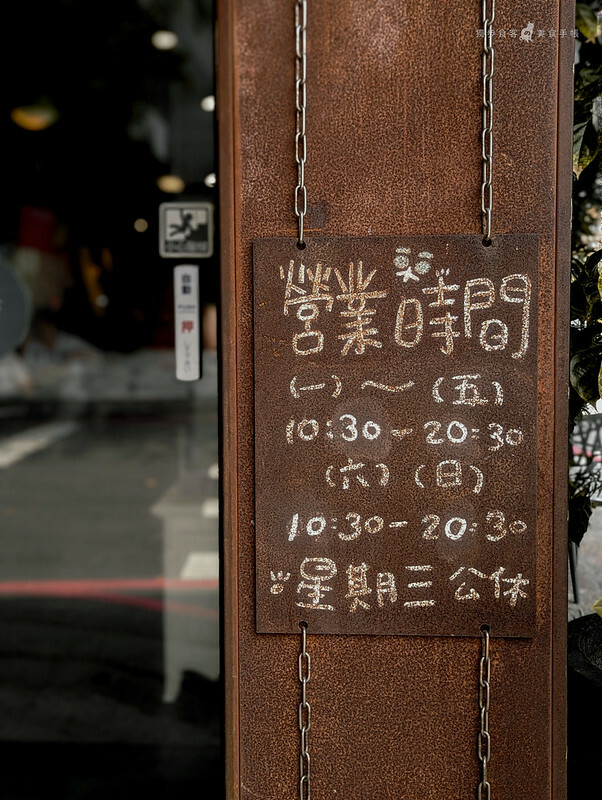 獨步食客 美食手帳
自動
押
營業時間
(一)～(五)
10:30-20:30
(六)(日)
10:30-20:30
星期三公休